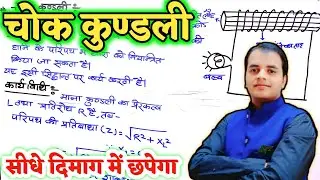 चोक कुण्डली
कुण्डली
के परिपथ में
किया जा सकता है।
यह इसी सिद्धान्त पर कार्य करती है।
कार्य विधि :-
माना कुण्डली का प्रेरकत्व
L तथा प्रतिरोध R है, तब-
परिपथ की प्रतिबाधा (Z) = √R² + X_L²
बल्ब
सीधे दिमाग में छपेगा